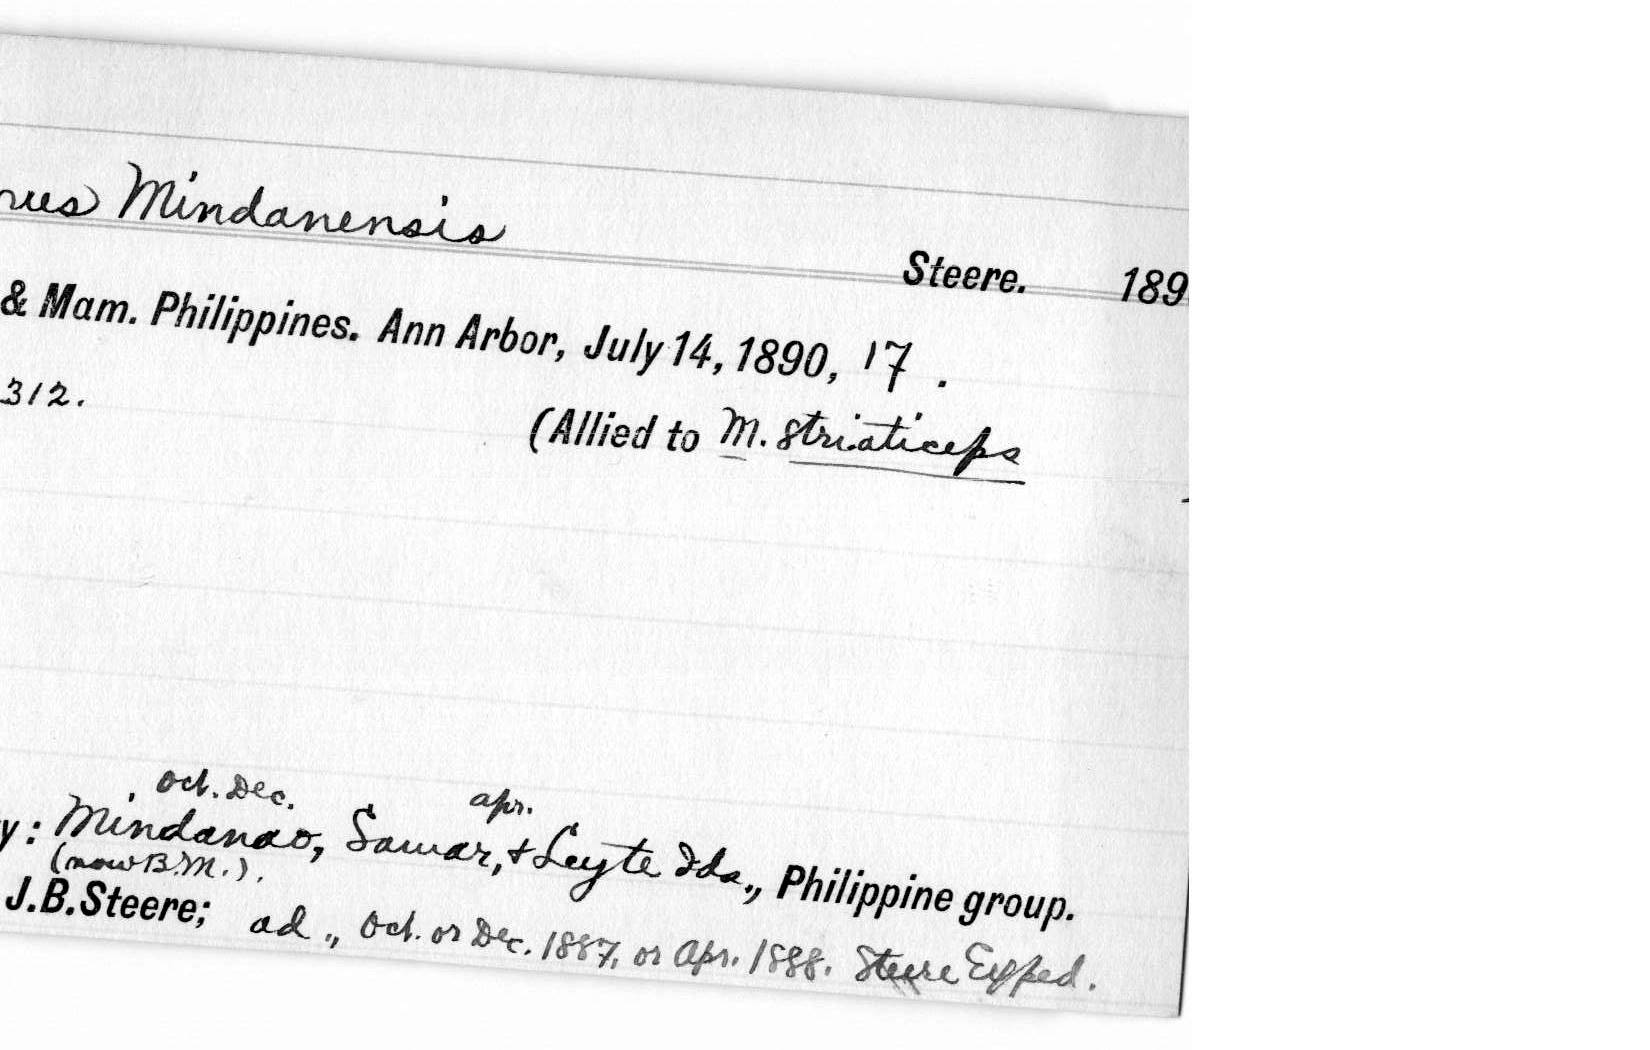 nus Mindanensis
Steere. 189
& Mam. Philippines. Ann Arbor, July 14, 1890, 17.
312.
(Allied to M. striaticeps
Oct. Dec. Apr.
y: Mindanao, Samar, & Leyte Ids., Philippine group.
(now B.M.).
J.B. Steere; ad., Oct. or Dec. 1887, or Apr. 1888. Steere Exped.